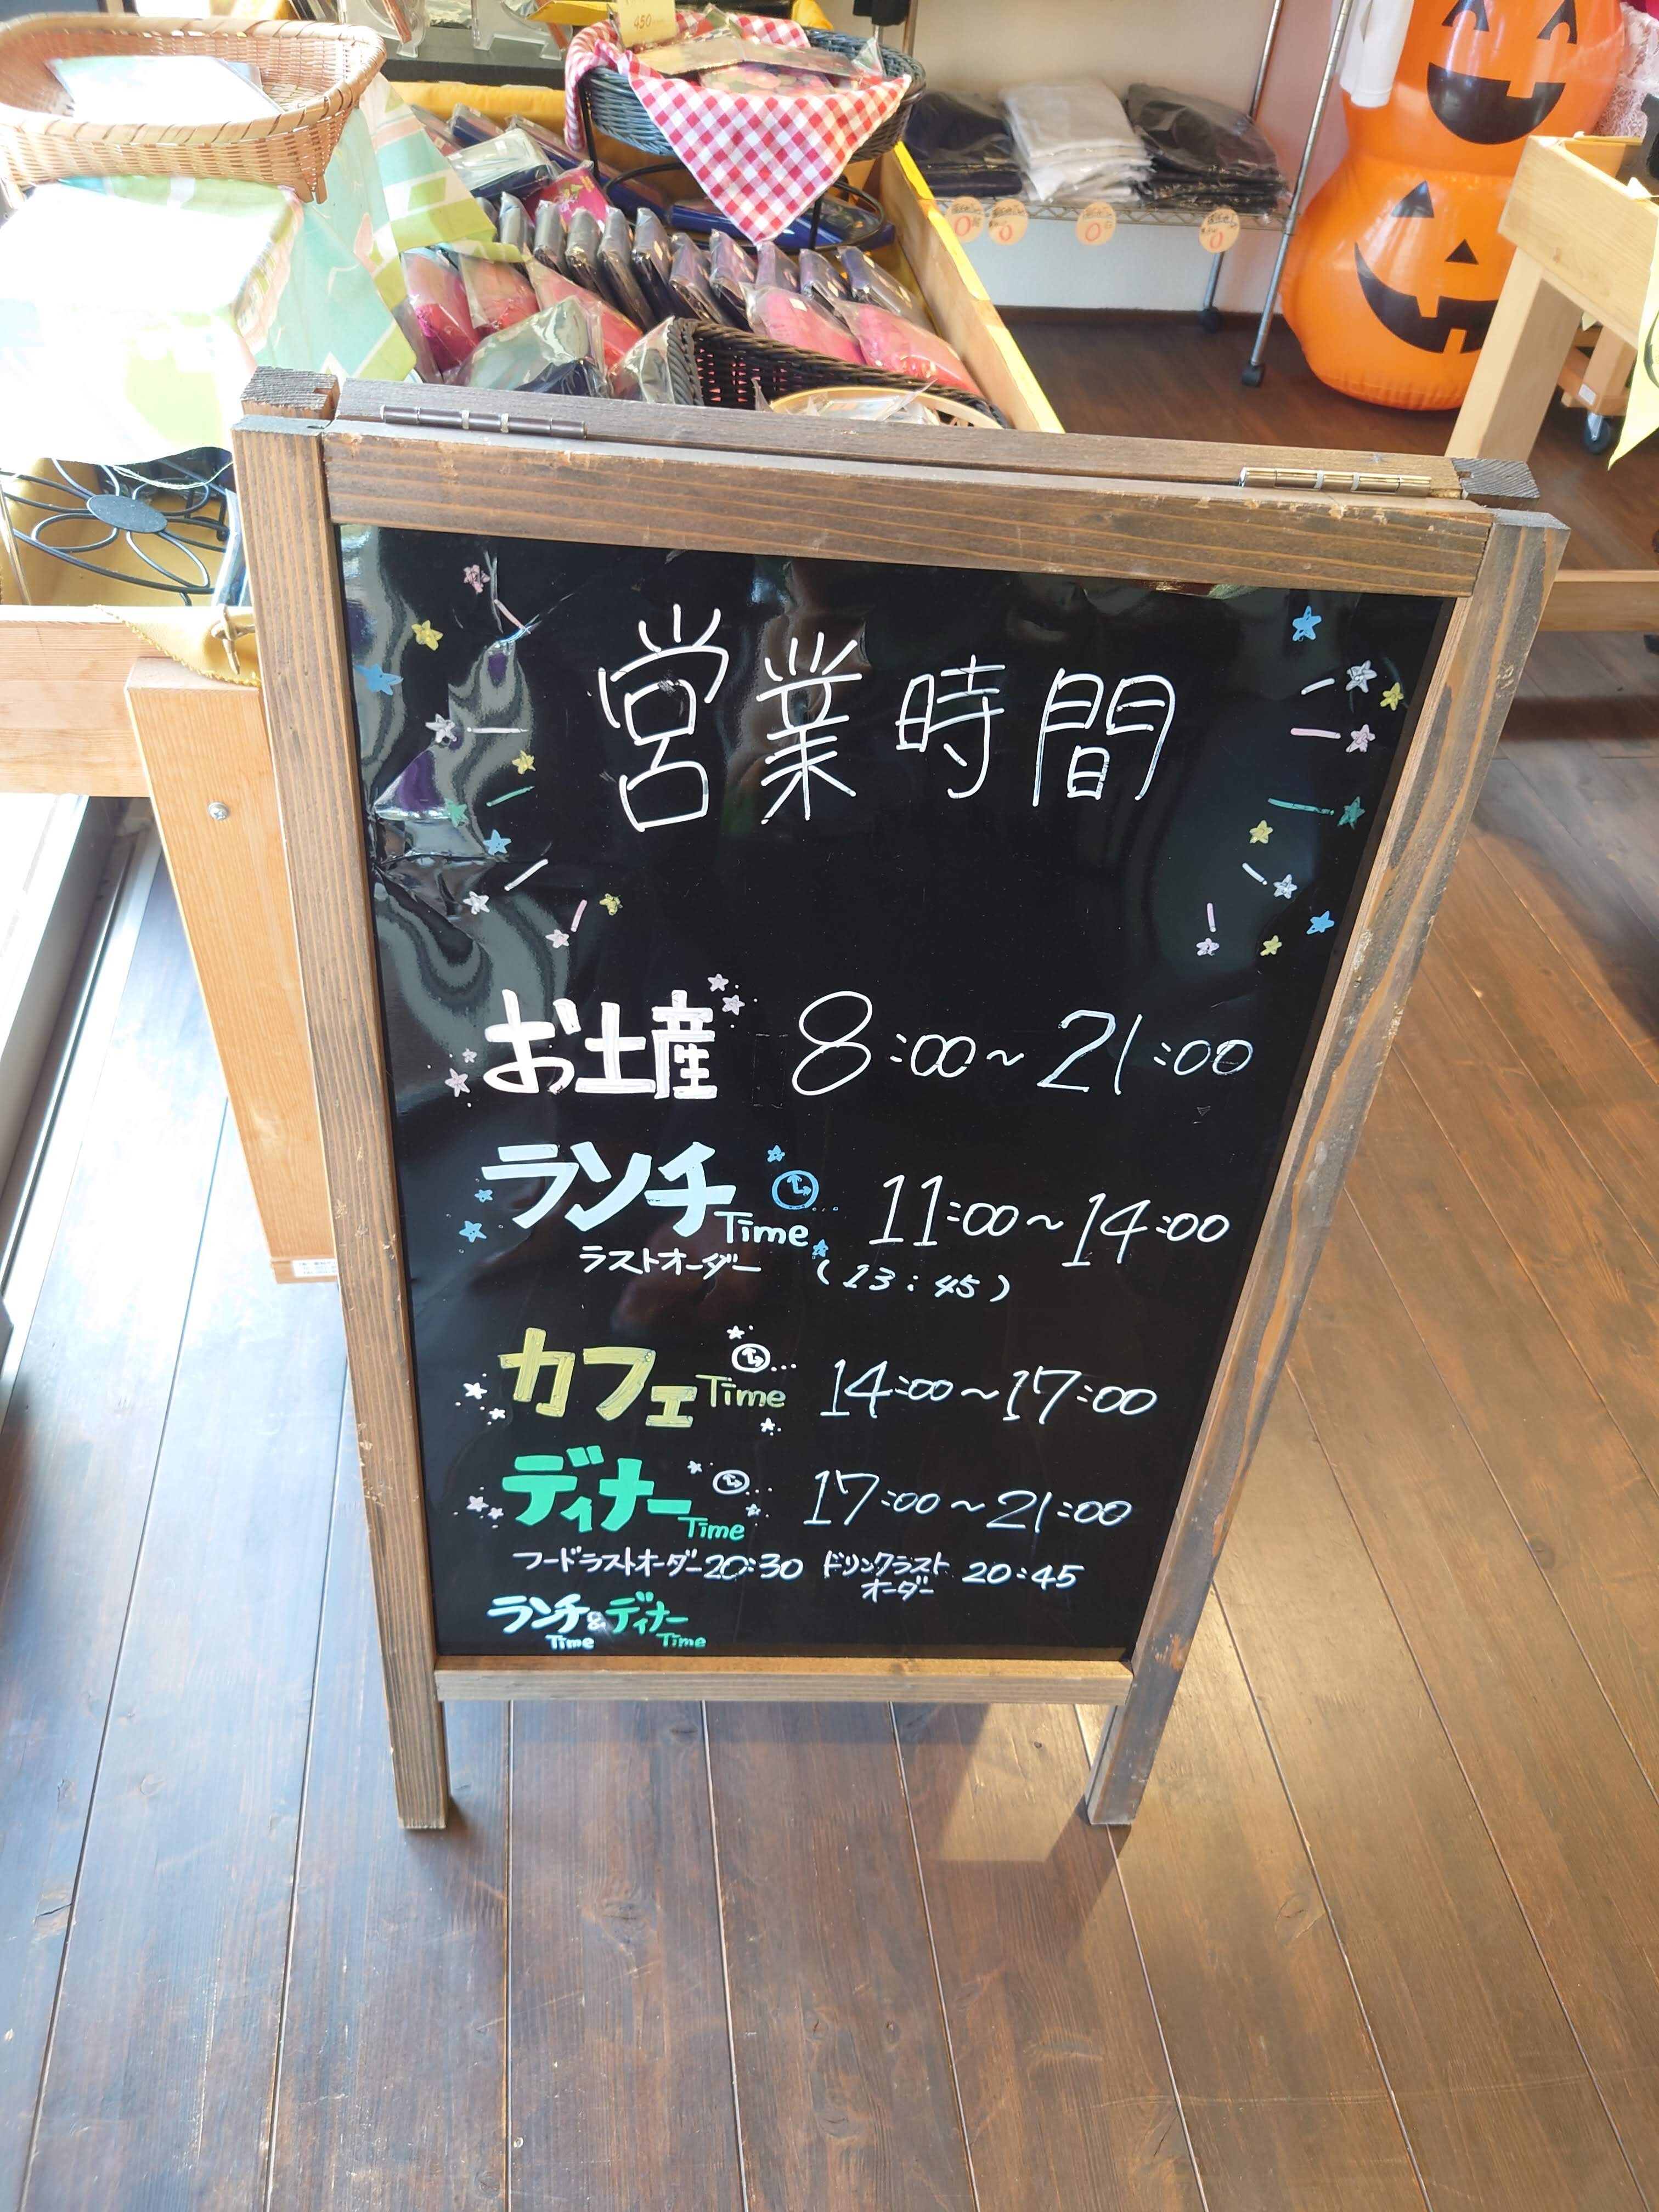 450
営業時間
お土産 8:00~21:00
ランチTime 11:00~14:00
ラストオーダー (13:45)
カフェTime 14:00~17:00
ディナーTime 17:00~21:00
フードラストオーダー20:30 ドリンクラストオーダー 20:45
ランチTime&ディナーTime